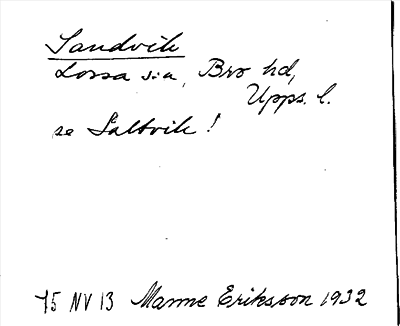 Sandvik
Lossa s:a, Bro hd,
Upps. l.
se Saltvik!
75 NV 13 Manne Eriksson 1932